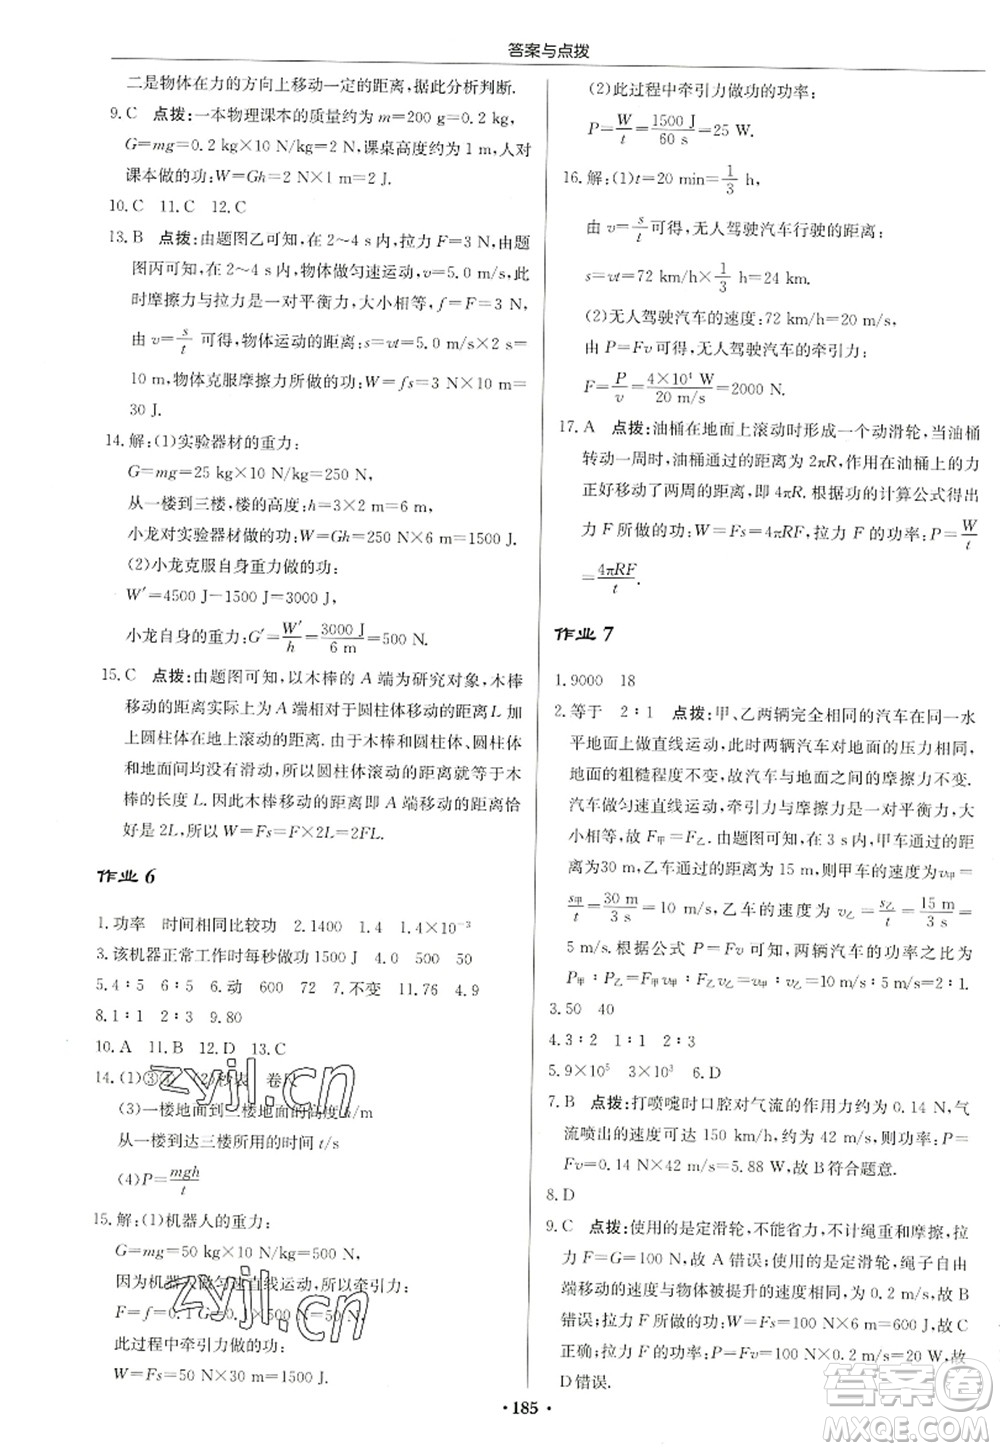 答案与点拨
二是物体在力的方向上移动一定的距离,据此分析判断.
9.C 点拨:一本物理课本的质量约为 m=200 g=0.2 kg,
G=mg=0.2 kg×10 N/kg=2 N,课桌高度约为 1 m,人对
课本做的功:W=Gh=2 N×1 m=2 J.
10.C 11.C 12.C
13.B 点拨:由题图乙可知,在 2~4 s 内,拉力 F=3 N,由题
图丙可知,在 2~4 s 内,物体做匀速运动,v=5.0 m/s,此
时摩擦力与拉力是一对平衡力,大小相等,f=F=3 N,
由 v=s/t 可得,物体运动的距离:s=vt=5.0 m/s×2 s=
10 m,物体克服摩擦力所做的功:W=fs=3 N×10 m=
30 J.
14.解:(1)实验器材的重力:
G=mg=25 kg×10 N/kg=250 N,
从一楼到三楼,楼的高度:h=3×2 m=6 m,
小龙对实验器材做的功:W=Gh=250 N×6 m=1500 J.
(2)小龙克服自身重力做的功:
W′=4500 J-1500 J=3000 J,
小龙自身的重力:G′=W′/h=3000 J/6 m=500 N.
15.C 点拨:由题图可知,以木棒的 A 端为研究对象,木棒
移动的距离实际上为 A 端相对于圆柱体移动的距离 L 加
上圆柱体在地上滚动的距离.由于木棒和圆柱体、圆柱体
和地面间均没有滑动,所以圆柱体滚动的距离等于木
棒的长度 L.因此木棒移动的距离即 A 端移动的距离恰
好是 2L,所以 W=Fs=F×2L=2FL.
作业 6
1.功率 时间相同比较功 2.1400 1.4 1.4×10⁻³
3.该机器正常工作时每秒做功 1500 J 4.0 500 50
5.4∶5 6∶5 6.动 600 72 7.不变 4 4.9
8.1∶1 2∶3 9.80
10.A 11.B 12.D 13.C
14.(1)③ (2)秒表 卷尺
(3)一楼地面到三楼地面的高度 h/m
从一楼到达三楼所用的时间 t/s
(4)P=mgh/t
15.解:(1)机器人的重力:
G=mg=50 kg×10 N/kg=500 N,
因为机器人做匀速直线运动,所以牵引力:
F=f=0.1 G=0.1×500 N=50 N,
此过程中牵引力做的功:
W=Fs=50 N×30 m=1500 J.
(2)此过程中牵引力做功的功率:
P=W/t=1500 J/60 s=25 W.
16.解:(1)t=20 min=1/3 h,
由 v=s/t 可得,无人驾驶汽车行驶的距离:
s=vt=72 km/h×1/3 h=24 km.
(2)无人驾驶汽车的速度:72 km/h=20 m/s,
由 P=Fv 可得,无人驾驶汽车的牵引力:
F=P/v=4×10⁴ W/20 m/s=2000 N.
17.A 点拨:油桶在地面上滚动时形成一个动滑轮,当油桶
转动一周时,油桶通过的距离为 2πR,作用在油桶上的力
正好移动了两周的距离,即 4πR.根据功的计算公式得出
力 F 所做的功:W=Fs=4πRF,拉力 F 的功率:P=W/t
=4πRF/t.
作业 7
1.9000 18
2.等于 2∶1 点拨:甲、乙两辆完全相同的汽车在同一水
平地面上做直线运动,此时两辆汽车对地面的压力相同,
地面的粗糙程度不变,故汽车与地面的摩擦力不变.
汽车做匀速直线运动,牵引力与摩擦力是一对平衡力,大
小相等,故 F甲=F乙.由题图可知,在 3 s 内,甲车通过的距
离为 30 m,乙车通过的距离为 15 m,则甲车的速度为v甲=
s甲/t=30 m/3 s=10 m/s,乙车的速度为 v乙=s乙/t=15 m/3 s=
5 m/s.根据公式 P=Fv 可知,两辆汽车的功率之比为
P甲∶P乙=F甲v甲∶F乙v乙=v甲∶v乙=10 m/s∶5 m/s=2∶1.
3.50 40
4.3∶2 1∶1 2∶3
5.9×10⁵ 3×10³ 6.D
7.B 点拨:打喷嚏时口腔对气流的作用力约为 0.14 N,气
流喷出的速度可达 150 km/h,约为 42 m/s,则功率:P=
Fv=0.14 N×42 m/s=5.88 W,故 B 符合题意.
8.D
9.C 点拨:使用的是定滑轮,不能省力,不计绳重和摩擦,拉
力 F=G=100 N,故 A 错误;使用的是定滑轮,绳子自由
端移动的速度与物体被提升的速度相同,为 0.2 m/s,故 B
错误;拉力 F 所做的功:W=Fs=100 N×6 m=600 J,故 C
正确;拉力 F 的功率:P=Fv=100 N×0.2 m/s=20 W,故
D 错误.
• 185 •
zyjl.cn
zyjl.cn
答案卷
MXQE.COM